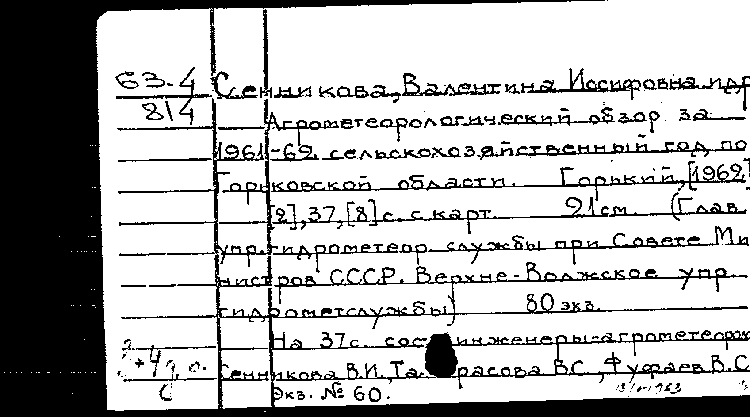 63.4 Сенникова, Валентина Иосифовна и др
814
Агрометеорологический обзор за
1961-62 сельскохозяйственный год по
Горьковской области. Горький, [1962]
[2], 37, [8] с. с карт. 21 см. (Глав.
упр. гидрометеор. службы при Совете Ми
нистров СССР. Верхне-Волжское упр
гидрометслужбы) 80 экз.
На 37 с. сост. инженеры-агрометеорол
Сенникова В.И., Та расова В.С., Фуфаев В.С
Экз. № 60.